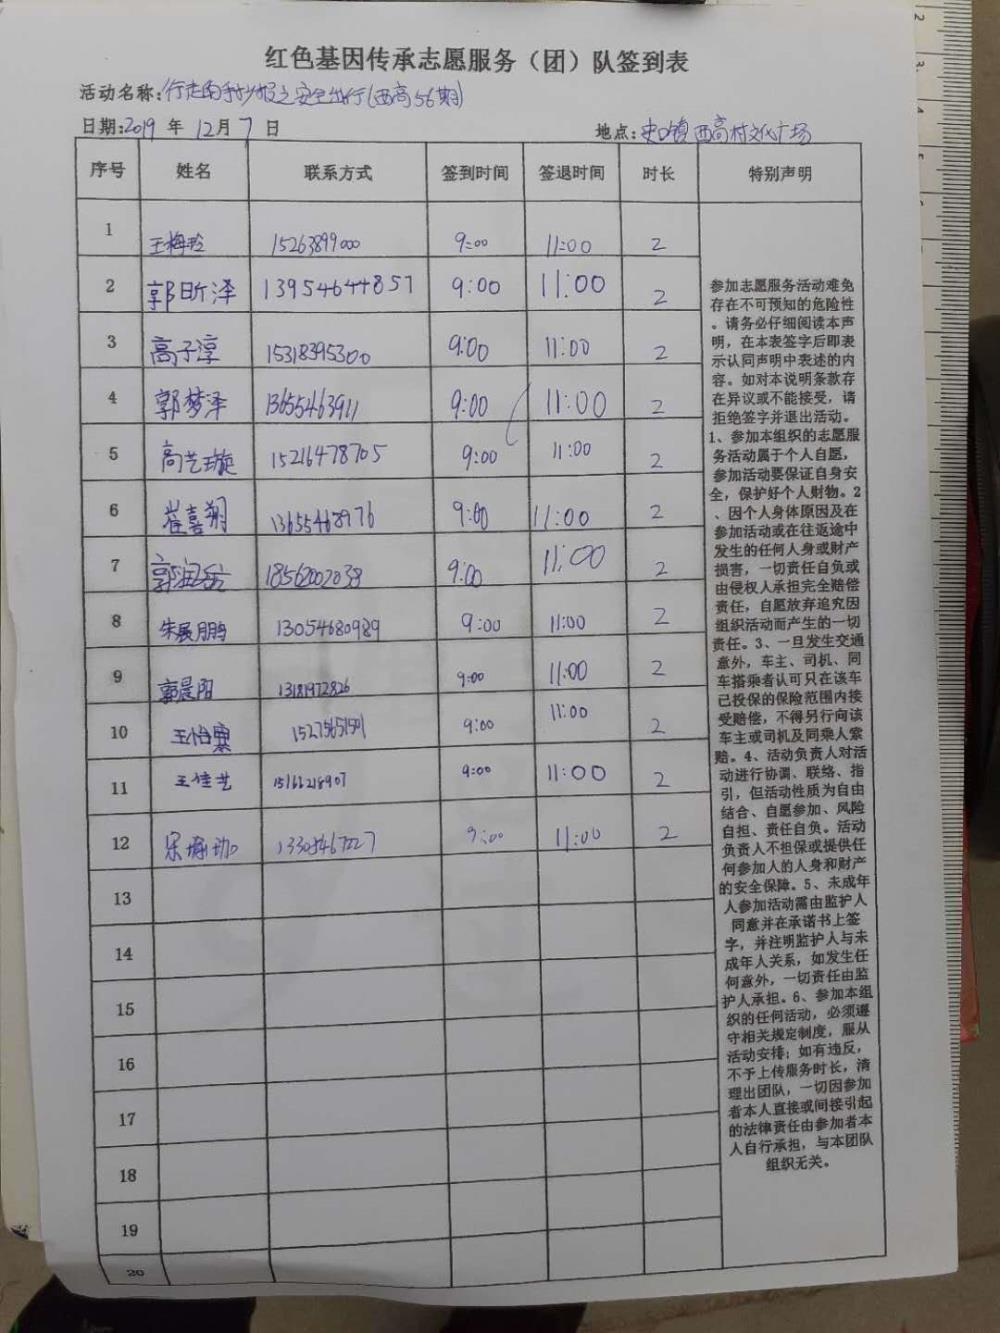 红色基因传承志愿服务（团）队签到表
活动名称:行走的 之安全出行(西高56期)
日期:2019 年 12月 7 日
地点: 史口镇西高村文化广场
序号 姓名 联系方式 签到时间 签退时间 时长 特别声明
1 王梅玲 15263899000 9:00 11:00 2
2 郭昕泽 13954644857 9:00 11:00 2
3 高子淳 15318395300 9:00 11:00 2
4 郭梦泽 13655463911 9:00 11:00 2
5 高艺璇 15216478705 9:00 11:00 2
6 崔喜翔 13655468976 9:00 11:00 2
7 郭润 18562002038 9:00 11:00 2
8 朱展鹏 13054680989 9:00 11:00 2
9 郭晨阳 13181972826 9:00 11:00 2
10 王怡 9:00 11:00 2
11 王佳艺 15166218907 9:00 11:00 2
12 9:00 11:00 2
13
14
15
16
17
18
19
20
参加志愿服务活动难免
存在不可预知的危险性
。请务必仔细阅读本声
明，在本表签字后即表
示认同声明中表述的内
容。如对本说明条款存
在异议或不能接受，请
拒绝签字并退出活动。
1、参加本组织的志愿服
务活动属于个人自愿，
参加活动要保证自身安
全，保护好个人财物。2
、因个人身体原因及在
参加活动或在往返途中
发生的任何人身或财产
损害，一切责任自负或
由侵权人承担完全赔偿
责任，自愿放弃追究因
组织活动而产生的一切
责任。3、一旦发生交通
意外，车主、司机、同
车搭乘者认可只在该车
已投保的保险范围内接
受赔偿，不得另行向该
车主或司机及同乘人索
赔。4、活动负责人对活
动进行协调、联络、指
引，但活动性质为自由
结合、自愿参加、风险
自担、责任自负。活动
负责人不担保或提供任
何参加人的人身和财产
的安全保障。5、未成年
人参加活动需由监护人
同意并在承诺书上签
字，并注明监护人与未
成年人关系，如发生任
何意外，一切责任由监
护人承担。6、参加本组
织的任何活动，必须遵
守相关规定制度，服从
活动安排；如有违反，
不予上传服务时长，清
理出团队，一切因参加
者本人直接或间接引起
的法律责任由参加者本
人自行承担，与本团队
组织无关。